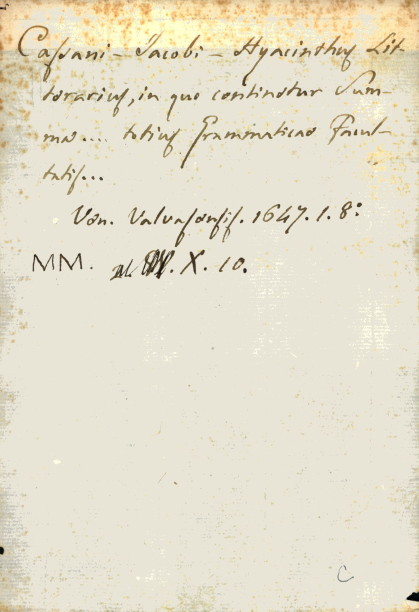 Caſsani - Jacobi - Hyacinthus Lit-
terarius, in quo continetur Sum-
ma.... totius Grammaticae Facul-
tatis...
Ven. Valvasensis. 1647. 1. 8º
MM. X. 10.
C